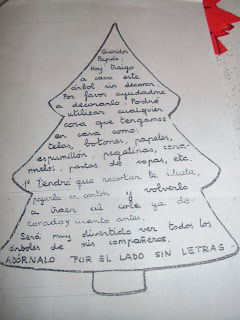 Queridos
Papás:
Hoy traigo
a casa este
árbol sin decorar.
Por favor ayudadme
a decorarlo. Podré
utilizar cualquier
cosa que tengamos
en casa como:
telas, botones, papeles,
espumillón, pegatinas, cara-
melos, pastas de sopas, etc.
Tendré que recortar la silueta,
pegarla en cartón y volverlo
a traer al cole ya de-
corado y cuanto antes.
Será muy divertido ver todos los
árboles de mis compañeros.
ADÓRNALO POR EL LADO SIN LETRAS